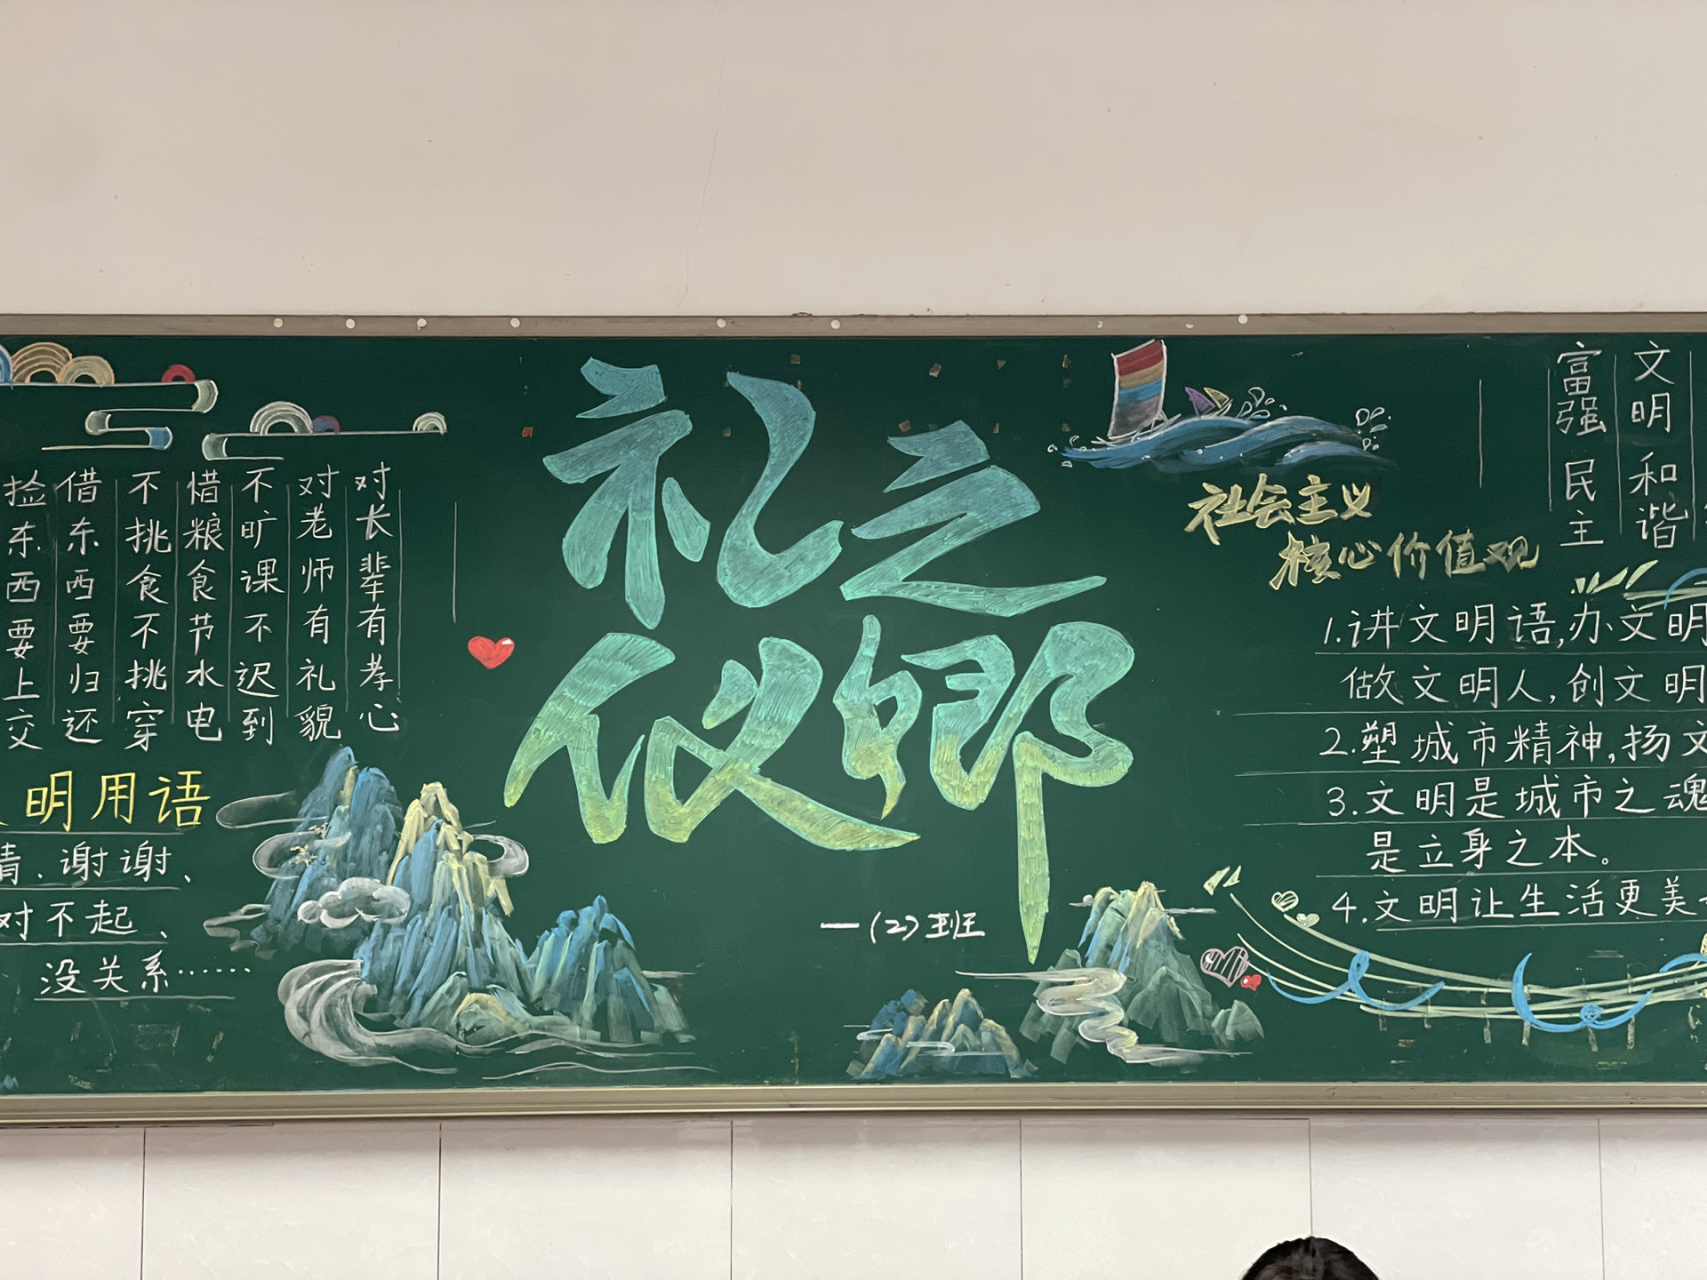 礼之
仪乡
一(2)班
对长辈有孝心
对老师有礼貌
不旷课不迟到
惜粮食节水电
不挑食不挑穿
借东西要归还
捡东西要上交
明用语
请、谢谢、
对不起、
没关系……
社会主义
核心价值观
富强 民主
文明 和谐
1.讲文明语,办文明
做文明人,创文明
2.塑城市精神,扬文
3.文明是城市之魂
是立身之本。
4.文明让生活更美